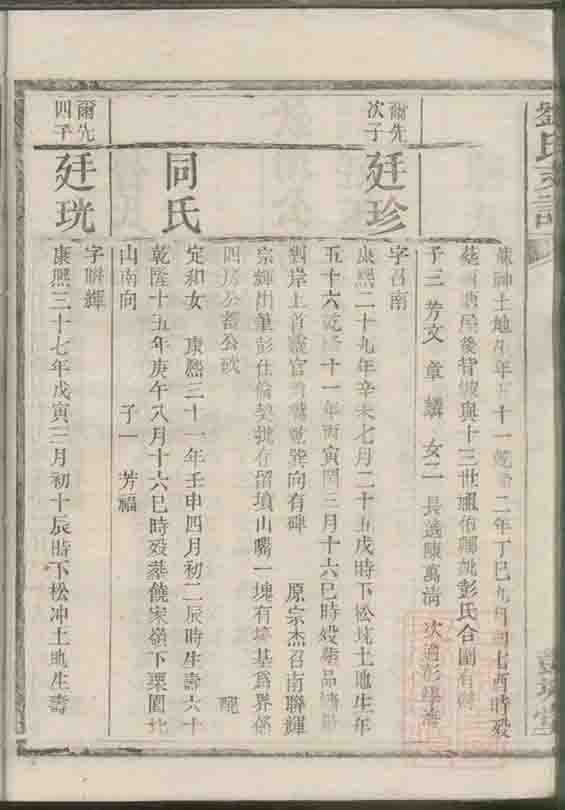 劉氏支譜
土地生年五十一乾隆二年丁巳九月初七酉時歿
屋後背與十三世祖彭氏合圍有碑
子三 芳文 章 麟 女二 長適陳萬淸 次適彭
爾先次子
廷珍
字召南
康熙二十九年辛未七月二十五戌時下松坑土地生年
五十六乾隆十一年丙寅閏三月十六巳時歿葬品
劉岸上首巽向有碑 原宗杰召南聯輝
宗輝出筆彭仕倫契批存留墳山嘴一塊有墳基爲界係
四房公蓄公砍
同氏
定和女 康熙三十一年壬申四月初二辰時生壽六十
乾隆十五年庚午八月十六巳時歿葬饒家嶺下栗園北
山南向 子一 芳福
爾先四子
廷珖
字聯輝
康熙三十七年戊寅二月初十辰時下松冲土地生壽